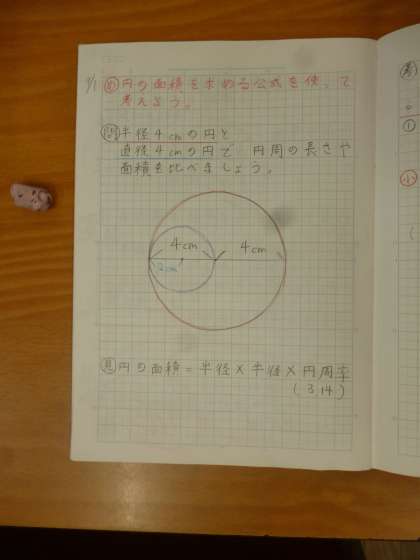 9/1
め 円の面積を求める公式を使って
考えよう。
問 半径4cmの円と
直径4cmの円で 円周の長さや
面積を比べましょう。
4cm 4cm
2cm
見 円の面積=半径×半径×円周率
(3.14)
考
①
小